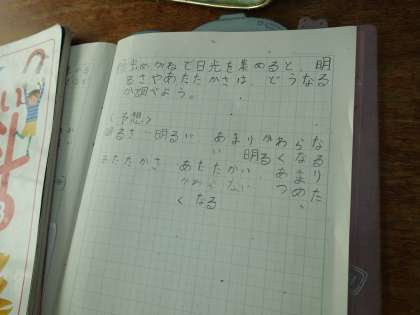 虫めがねで日光を集めると、明
るさやあたたかさは、どうなる
か調べよう。
(予想)
明るさ 明るい あまりかわらな
い 明るくなる
あたたかさ あたたかい あまり
かわらない つめた
くなる